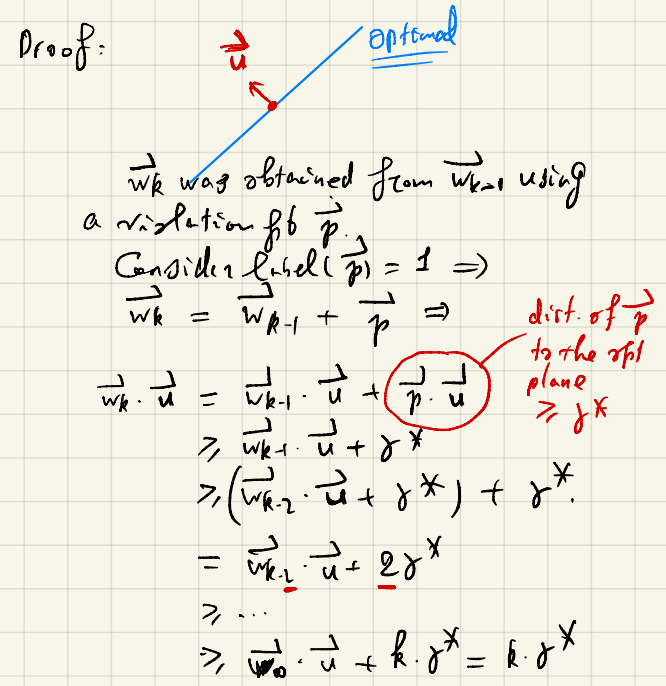 Proof:
u⃗
optimal
w⃗k was obtained from w⃗k-1 using
a violation pt p⃗.
Consider label(p⃗) = 1 ⇒
w⃗k = w⃗k-1 + p⃗ ⇒
dist. of p⃗
to the opt
plane
≥ γ*
w⃗k · u⃗ = w⃗k-1 · u⃗ + p⃗ · u⃗
≥ w⃗k-1 · u⃗ + γ*
≥ (w⃗k-2 · u⃗ + γ*) + γ*.
= w⃗k-2 · u⃗ + 2γ*
≥ ...
≥ w⃗0 · u⃗ + k · γ* = k · γ*